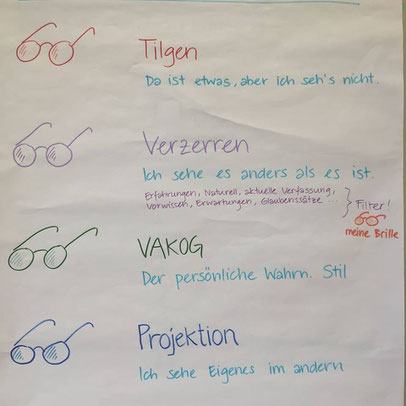 Tilgen
Da ist etwas, aber ich seh's nicht.
Verzerren
Ich sehe es anders als es ist.
Erfahrungen, Naturell, aktuelle Verfassung,
Vorwissen, Erwartungen, Glaubenssätze ...
Filter!
meine Brille
VAKOG
Der persönliche Wahrn. Stil
Projektion
Ich sehe Eigenes im andern